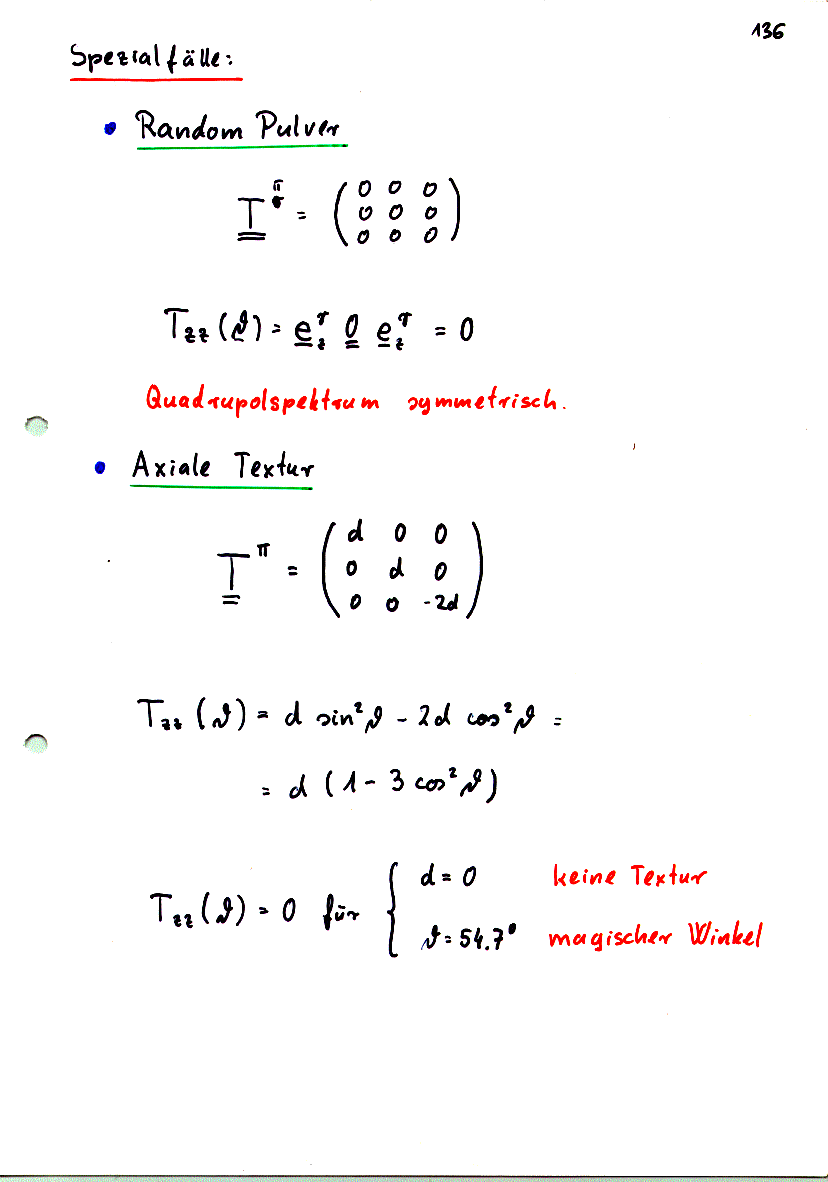 136
Spezialfälle:
• Random Pulver
T^π = ( 0 0 0
0 0 0
0 0 0 )
T_zz (ϑ) = e_z^γ 0 e_z^γ = 0
Quadrupolspektrum symmetrisch.
• Axiale Textur
T^π = ( d 0 0
0 d 0
0 0 -2d )
T_zz (ϑ) = d sin²ϑ - 2d cos²ϑ =
= d (1 - 3 cos²ϑ)
T_zz (ϑ) = 0 für { d = 0 keine Textur
ϑ = 54.7° magischer Winkel